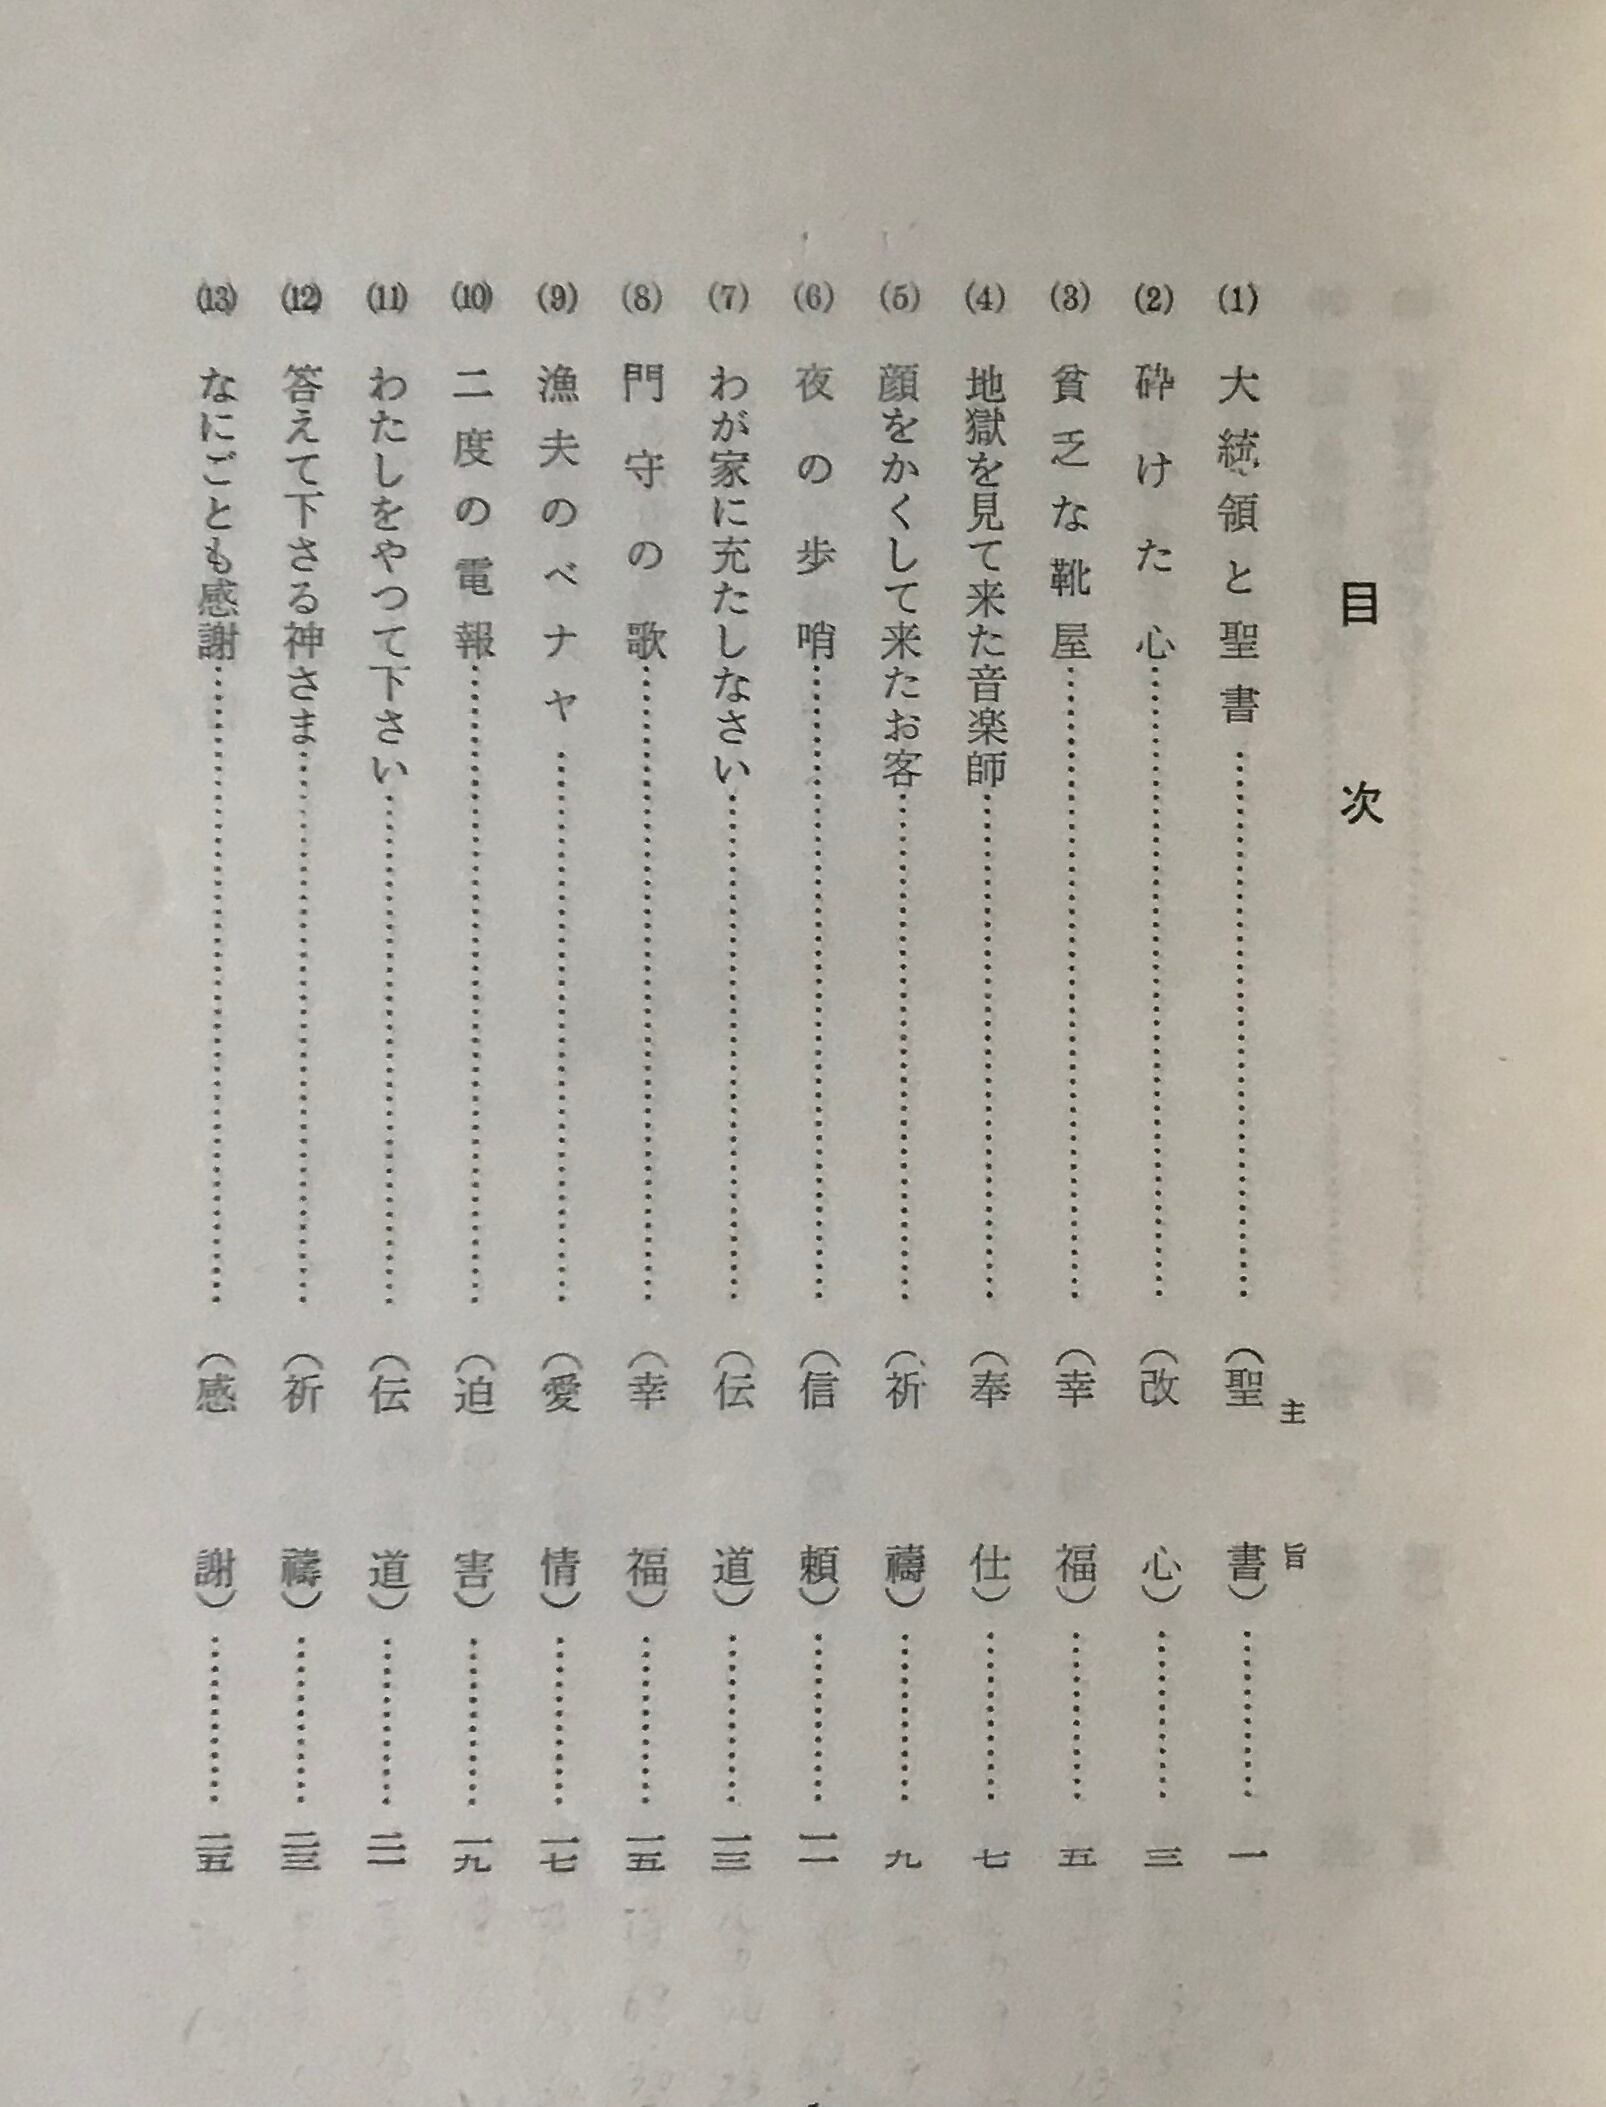 目次
主旨
(1) 大統領と聖書……(聖書)……一
(2) 砕けた心……(改心)……三
(3) 貧乏な靴屋……(幸福)……五
(4) 地獄を見て来た音楽師……(奉仕)……七
(5) 顔をかくして来たお客……(祈禱)……九
(6) 夜の歩哨……(信頼)……一一
(7) わが家に充たしなさい……(伝道)……一三
(8) 門守の歌……(幸福)……一五
(9) 漁夫のベナヤ……(愛情)……一七
(10) 二度の電報……(迫害)……一九
(11) わたしをやつて下さい……(伝道)……二一
(12) 答えて下さる神さま……(祈禱)……二三
(13) なにごとも感謝……(感謝)……二五